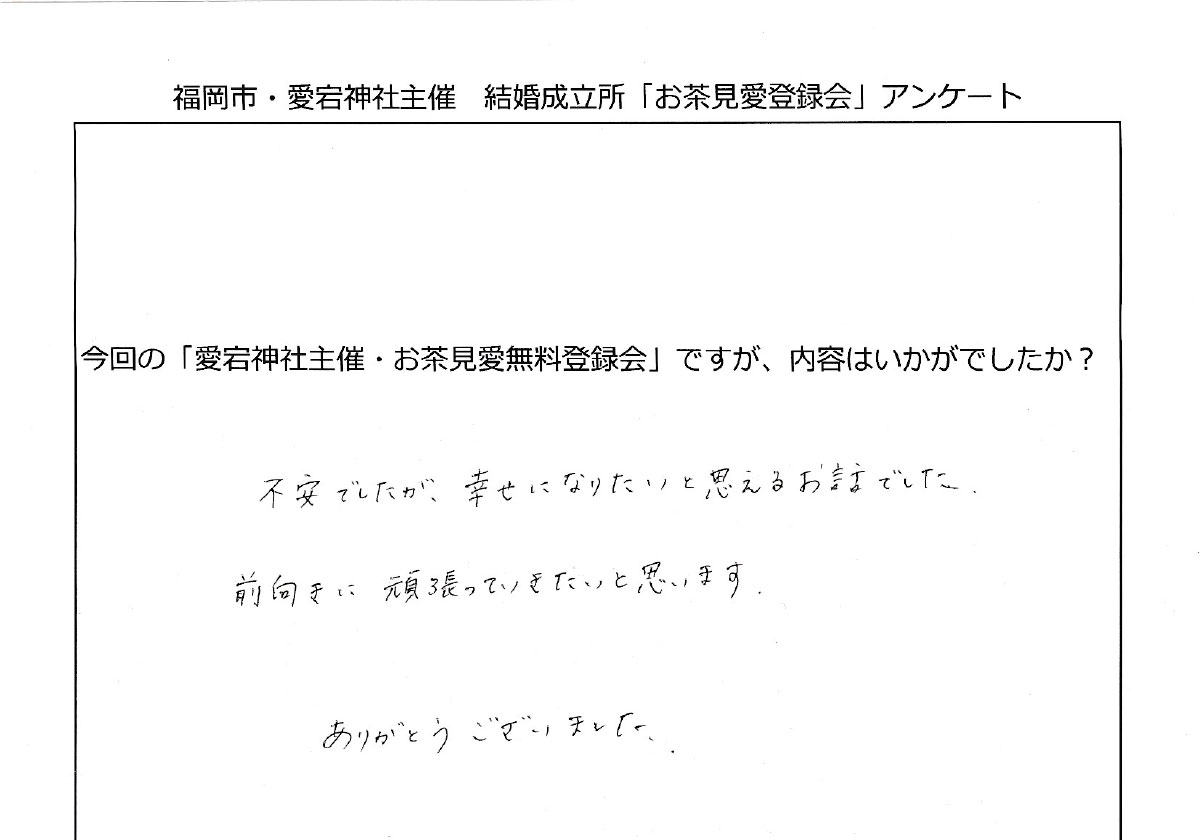 福岡市・愛宕神社主催　結婚成立所「お茶見愛登録会」アンケート
今回の「愛宕神社主催・お茶見愛無料登録会」ですが、内容はいかがでしたか？
不安でしたが、幸せになりたいと思えるお話でした.
前向きに頑張っていきたいと思います.
ありがとうございました.